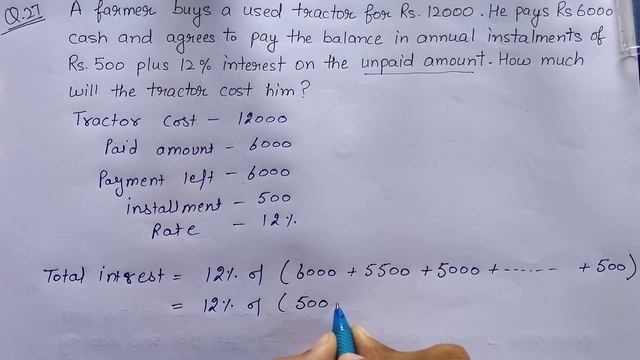 Q.27 A farmer buys a used tractor for Rs. 12000. He pays Rs 6000
cash and agrees to pay the balance in annual instalments of
Rs. 500 plus 12% interest on the unpaid amount. How much
will the tractor cost him?
Tractor cost - 12000
Paid amount - 6000
Payment left - 6000
installment - 500
Rate - 12%
Total interest = 12% of (6000 + 5500 + 5000 + ...... + 500)
= 12% of (500